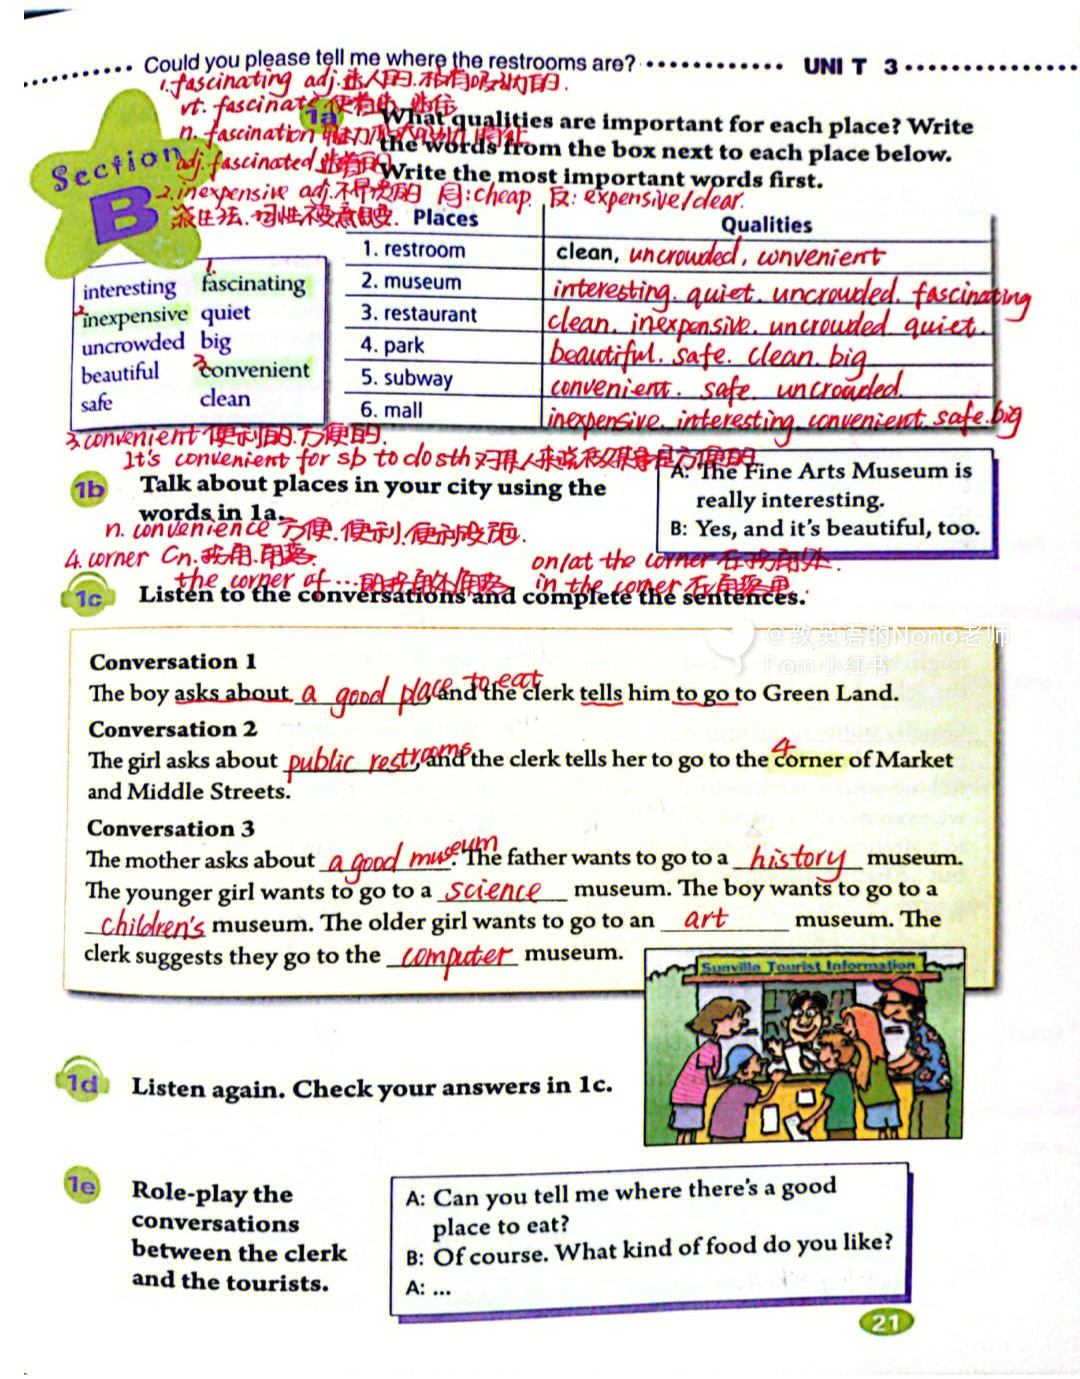 Could you please tell me where the restrooms are? UNIT 3
1. fascinating adj. 迷人的.极有吸引力的.
vt. fascinate 使着迷.迷住
n. fascination 魅力
adj. fascinated 着迷的
2. inexpensive adj. 不昂贵的 同: cheap 反: expensive/dear.
Section B
1a What qualities are important for each place? Write
the words from the box next to each place below.
Write the most important words first.
Places Qualities
1. restroom clean, uncrowded, convenient
2. museum interesting. quiet. uncrowded. fascinating
3. restaurant clean. inexpensive. uncrowded quiet.
4. park beautiful. safe. clean. big
5. subway convenient. safe. uncrowded.
6. mall inexpensive. interesting. convenient. safe. big
interesting 1. fascinating
2 inexpensive quiet
uncrowded big
beautiful 3 convenient
safe clean
3. convenient 便利的.方便的.
It's convenient for sb to do sth 对某人来说做某事是方便的
1b Talk about places in your city using the
words in 1a.
A: The Fine Arts Museum is
really interesting.
B: Yes, and it's beautiful, too.
n. convenience 方便.便利.便利设施.
4. corner Cn. 拐角.角落. on/at the corner 在拐角处.
the corner of ... 的拐角处/角落 in the corner 在角落里.
1c Listen to the conversations and complete the sentences.
@教英语的Nono老师
From 小红书
Conversation 1
The boy asks about a good place to eat and the clerk tells him to go to Green Land.
Conversation 2
The girl asks about public restrooms, and the clerk tells her to go to the 4 corner of Market
and Middle Streets.
Conversation 3
The mother asks about a good museum. The father wants to go to a history museum.
The younger girl wants to go to a science museum. The boy wants to go to a
children's museum. The older girl wants to go to an art museum. The
clerk suggests they go to the computer museum.
Sunville Tourist Information
1d Listen again. Check your answers in 1c.
1e Role-play the
conversations
between the clerk
and the tourists.
A: Can you tell me where there's a good
place to eat?
B: Of course. What kind of food do you like?
A: ...
21